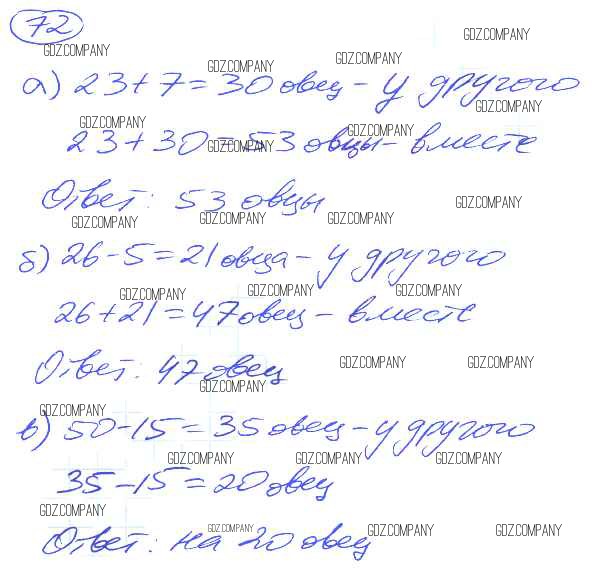 72
GDZ.COMPANY GDZ.COMPANY
GDZ.COMPANY GDZ.COMPANY
а) 23 + 7 = 30 овец - у другого
GDZ.COMPANY GDZ.COMPANY
23 + 30 = 53 овцы - вместе
GDZ.COMPANY GDZ.COMPANY
Ответ: 53 овцы
GDZ.COMPANY
GDZ.COMPANY GDZ.COMPANY GDZ.COMPANY
б) 26 - 5 = 21 овца - у другого
GDZ.COMPANY GDZ.COMPANY GDZ.COMPANY
26 + 21 = 47 овец - вместе
GDZ.COMPANY GDZ.COMPANY
Ответ: 47 овец
GDZ.COMPANY
GDZ.COMPANY
в) 50 - 15 = 35 овец - у другого
GDZ.COMPANY GDZ.COMPANY GDZ.COMPANY
35 - 15 = 20 овец
GDZ.COMPANY
GDZ.COMPANY GDZ.COMPANY GDZ.COMPANY
Ответ: на 20 овец